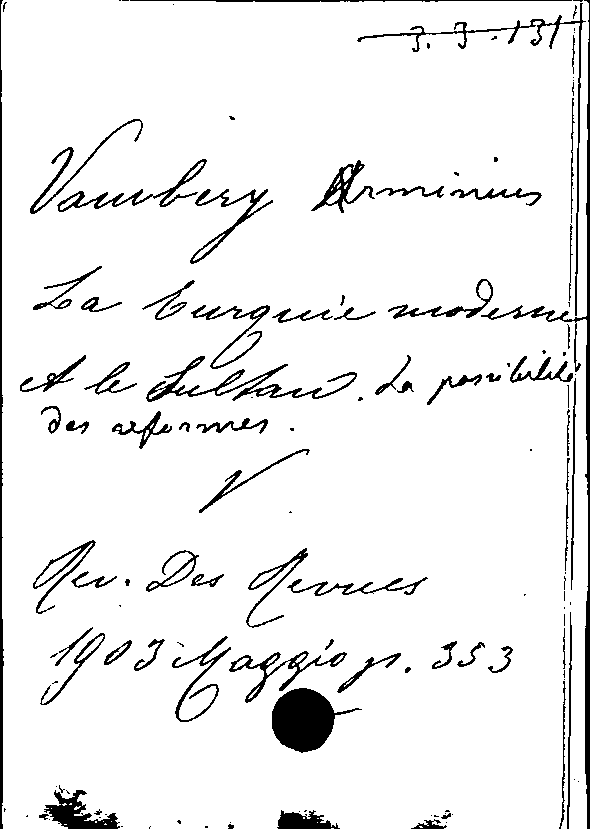 3. 3. 131
Vambery Arminius
La turquie moderne
et le Sultan. La possibilité
des reformes.
V
Rev. Des Revues
1903 Maggio p. 353